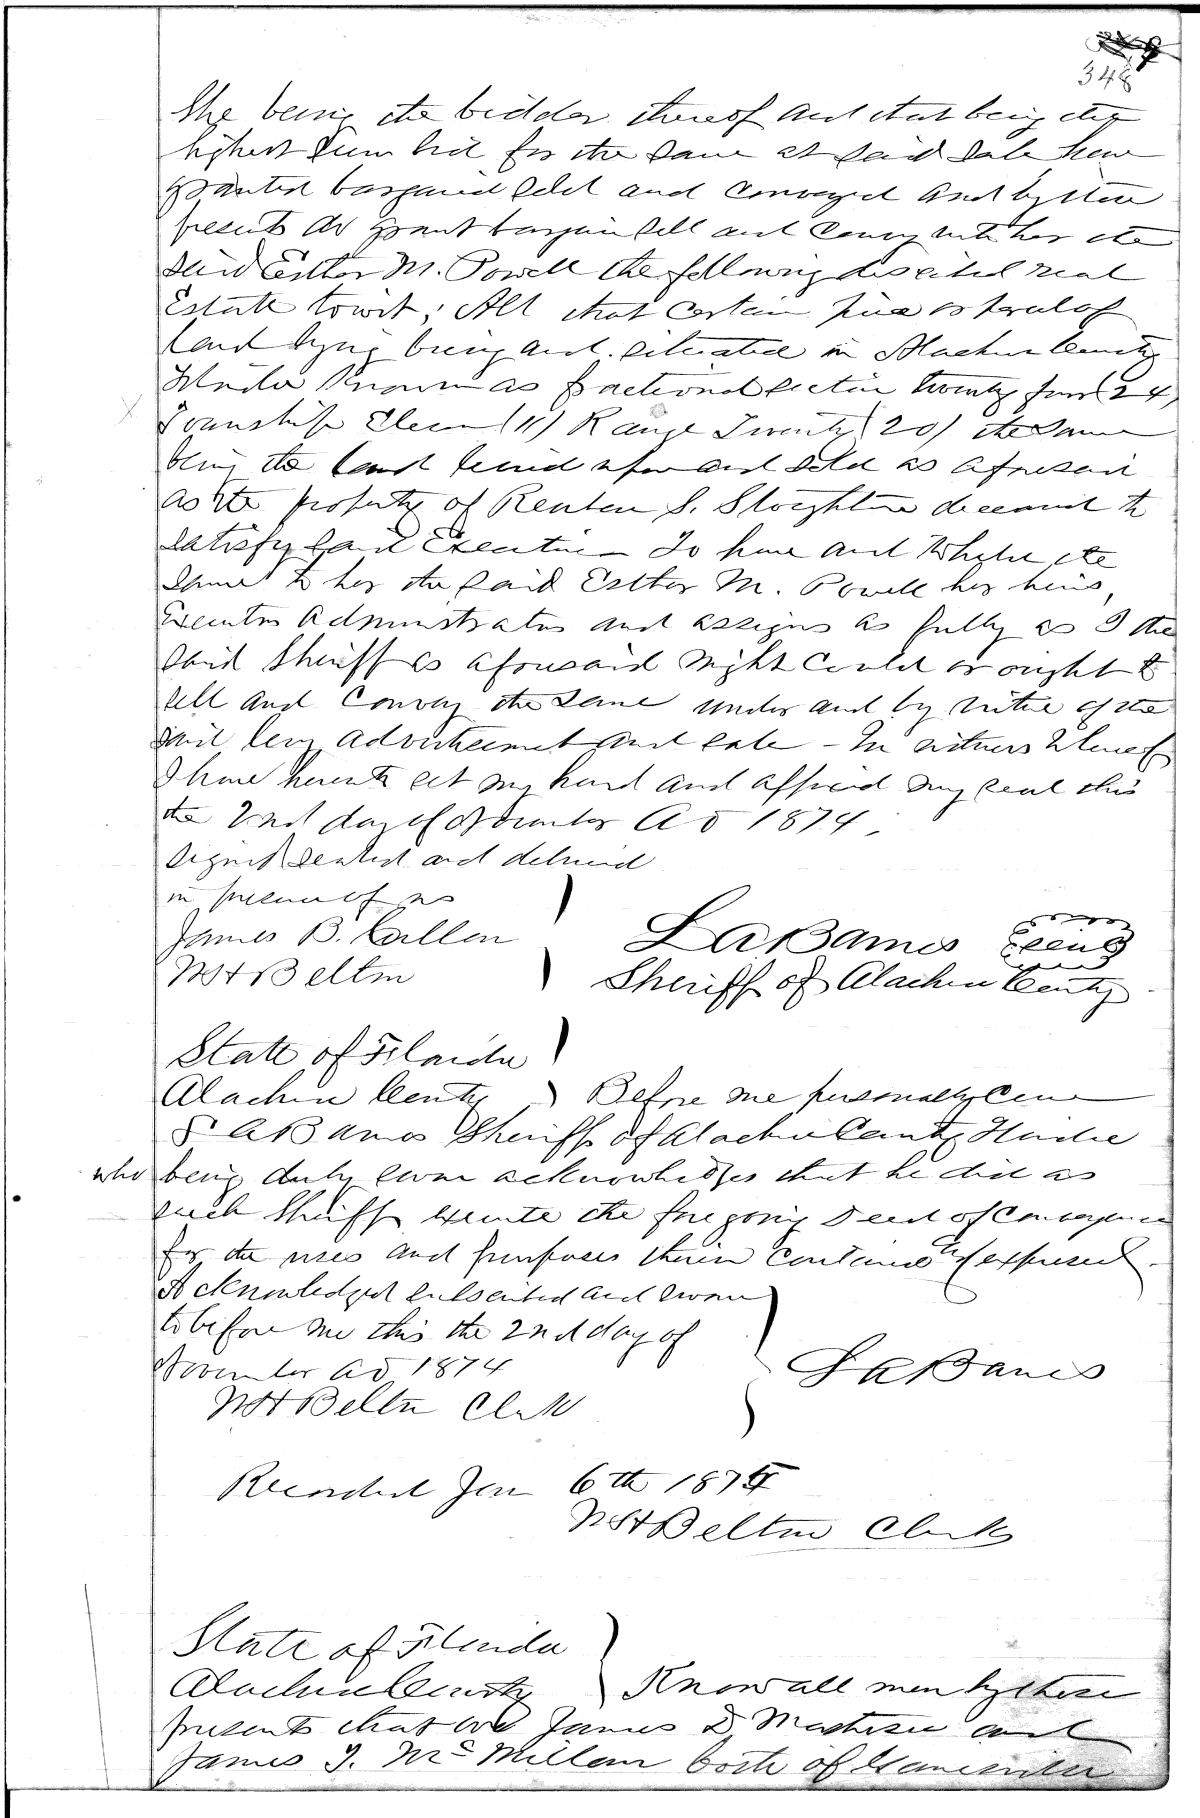 348
She being the bidder thereof and that being the
highest sum bid for the same at said sale have
granted bargained sold and conveyed and by these
presents do grant bargain sell and convey unto her the
said Esther M. Powell the following described real
Estate towit; All that certain piece or parcel of
land lying being and situated in Alachua County
Florida Known as fractional section twenty four (24)
Township Eleven (11) Range Twenty (20) the same
being the land levied upon and sold as aforesaid
as the property of Reuben S. deceased to
satisfy said Execution - To have and to hold the
same to her the said Esther M. Powell her heirs,
Executors Administrators and assigns as fully as I the
said Sheriff as aforesaid might could or ought to
sell and convey the same under and by virtue of the
said levy advertisement and sale - In witness whereof
I have hereunto set my hand and affixed my seal this
the 2nd day of November AD 1874.
Signed sealed and delivered
in presence of us
James B. Cullen
WH Belton
L A Barnes Seal
Sheriff of Alachua County
State of Florida
Alachua County Before me personally came
L A Barnes Sheriff of Alachua County Florida
who being duly sworn acknowledges that he did as
such Sheriff execute the foregoing Deed of Conveyance
for the uses and purposes therein contained & expressed.
Acknowledged subscribed and sworn
to before me this the 2nd day of
November AD 1874
L A Barnes
WH Belton Clerk
Recorded Jan 6th 1875
WH Belton Clerk
State of Florida
Alachua County Know all men by these
presents that we James D and
James T. McMillan both of Gainesville